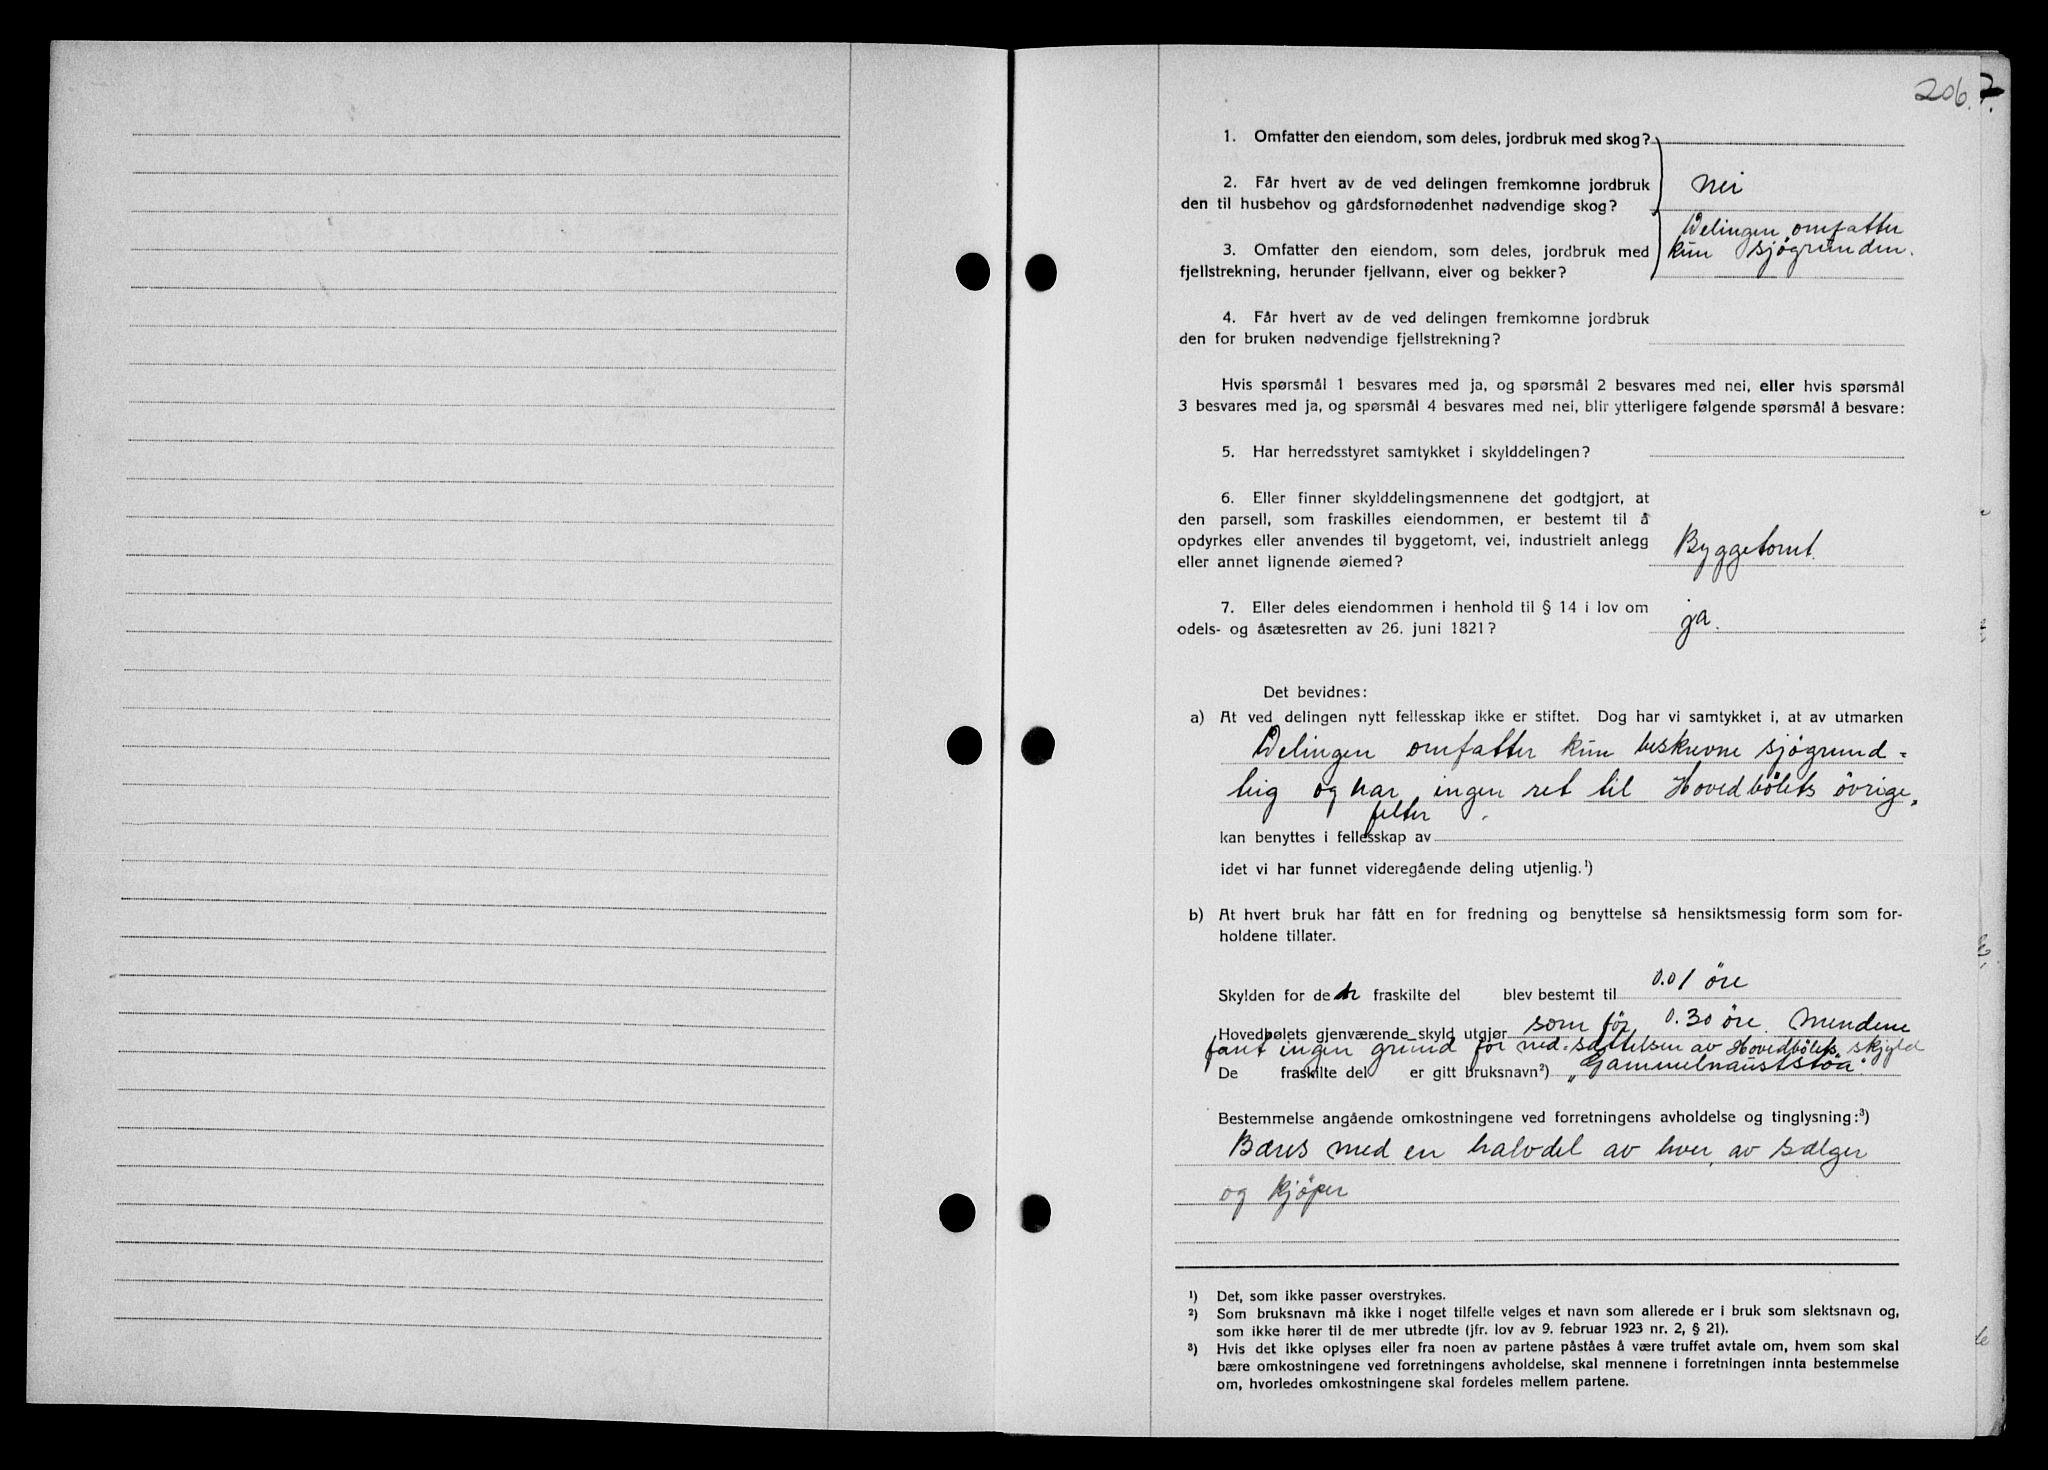 206. 7.
1. Omfatter den eiendom, som deles, jordbruk med skog?
2. Får hvert av de ved delingen fremkomne jordbruk
den til husbehov og gårdsfornødenhet nødvendige skog?
nei
3. Omfatter den eiendom, som deles, jordbruk med
fjellstrekning, herunder fjellvann, elver og bekker?
Delingen omfatter
kun sjøgrunden.
4. Får hvert av de ved delingen fremkomne jordbruk
den for bruken nødvendige fjellstrekning?
Hvis spørsmål 1 besvares med ja, og spørsmål 2 besvares med nei, eller hvis spørsmål
3 besvares med ja, og spørsmål 4 besvares med nei, blir ytterligere følgende spørsmål å besvare:
5. Har herredsstyret samtykket i skylddelingen?
6. Eller finner skylddelingsmennene det godtgjort, at
den parsell, som fraskilles eiendommen, er bestemt til å
opdyrkes eller anvendes til byggetomt, vei, industrielt anlegg
eller annet lignende øiemed?
Byggetomt.
7. Eller deles eiendommen i henhold til § 14 i lov om
odels- og åsætesretten av 26. juni 1821?
ja.
Det bevidnes:
a) At ved delingen nytt fellesskap ikke er stiftet. Dog har vi samtykket i, at av utmarken
Delingen omfatter kun beskrevne sjøgrund-
og har ingen ret til Hovedbølets øvrige
felter.
kan benyttes i fellesskap av
idet vi har funnet videregående deling utjenlig.¹)
b) At hvert bruk har fått en for fredning og benyttelse så hensiktsmessig form som for-
holdene tillater.
Skylden for den fraskilte del blev bestemt til 0.01 öre
Hovedbølets gjenværende skyld utgjør som før 0.30 öre. Mendene
fant ingen grund for ned-sættelsen av Hovedbølets skjyld
De fraskilte del er gitt bruksnavn²) „Gammelnauststöa".
Bestemmelse angående omkostningene ved forretningens avholdelse og tinglysning:³)
Bæres med en halvdel av hver, av sælger
og kjöper
¹) Det, som ikke passer overstrykes.
²) Som bruksnavn må ikke i noget tilfelle velges et navn som allerede er i bruk som slektsnavn og,
som ikke hører til de mer utbredte (jfr. lov av 9. februar 1923 nr. 2, § 21).
³) Hvis det ikke oplyses eller fra noen av partene påståes å være truffet avtale om, hvem som skal
bære omkostningene ved forretningens avholdelse, skal mennene i forretningen innta bestemmelse
om, hvorledes omkostningene skal fordeles mellem partene.